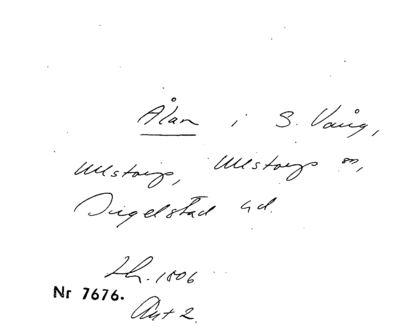 Ålan i S. Vång,
Ullstorp, Ullstorps sn,
Ingelstad hd.
Lh. 1806
Nr 7676.
Akt 2.